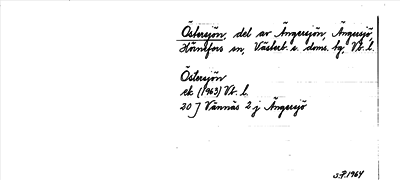 Östersjön, del av Ängersjön, Ängersjö,
Hörnefors sn, Västerb. s. doms. tg, Vb. l.
Östersjön
ek (1963) Vb. l.
20 J Vännäs 2 j Ängersjö
S:P. 1964